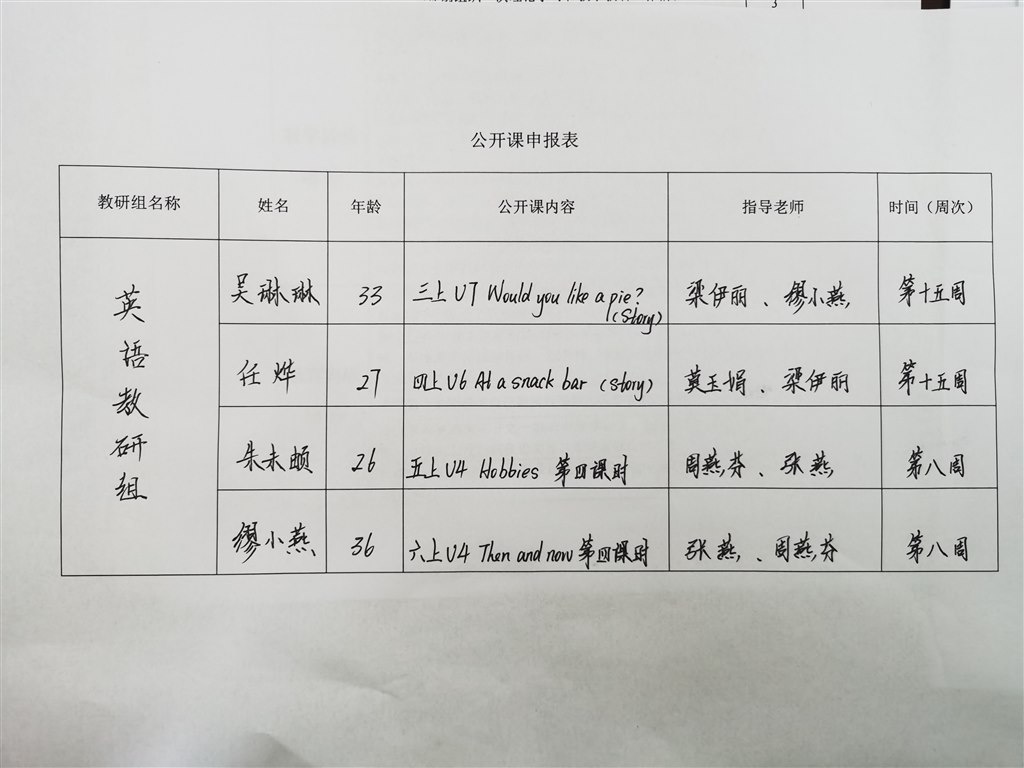 3
公开课申报表
教研组名称 姓名 年龄 公开课内容 指导老师 时间（周次）
英语教研组
吴琳琳 33 三上 U7 Would you like a pie? (story) 梁伊丽、缪小燕 第十五周
任烨 27 四上 U6 At a snack bar (story) 黄玉娟、梁伊丽 第十五周
朱未頔 26 五上 U4 Hobbies 第四课时 周燕芬、张燕 第八周
缪小燕 36 六上 U4 Then and now 第四课时 张燕、周燕芬 第八周